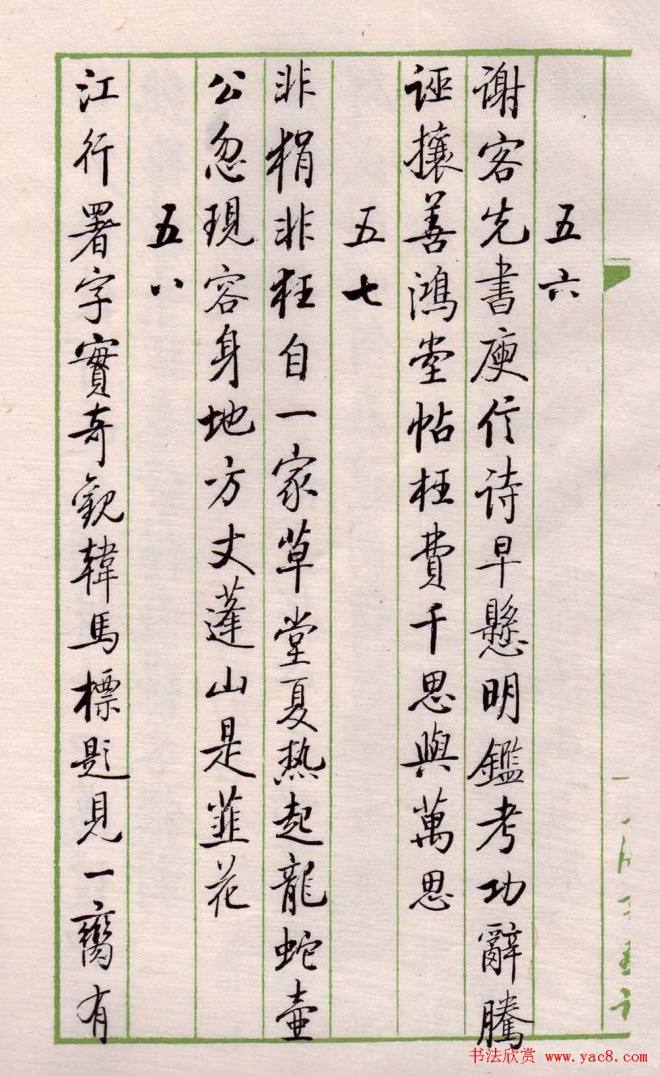 五六
谢客先書庾信诗早懸明鑑考功辭騰
誣攘善鴻堂帖枉費千思與萬思
五七
非狷非狂自一家草堂夏热起龍蛇壺
公忽現容身地方丈蓬山是韮花
五八
江行署字實奇觀韓馬標題見一臠有
书法欣赏 www.yac8.com